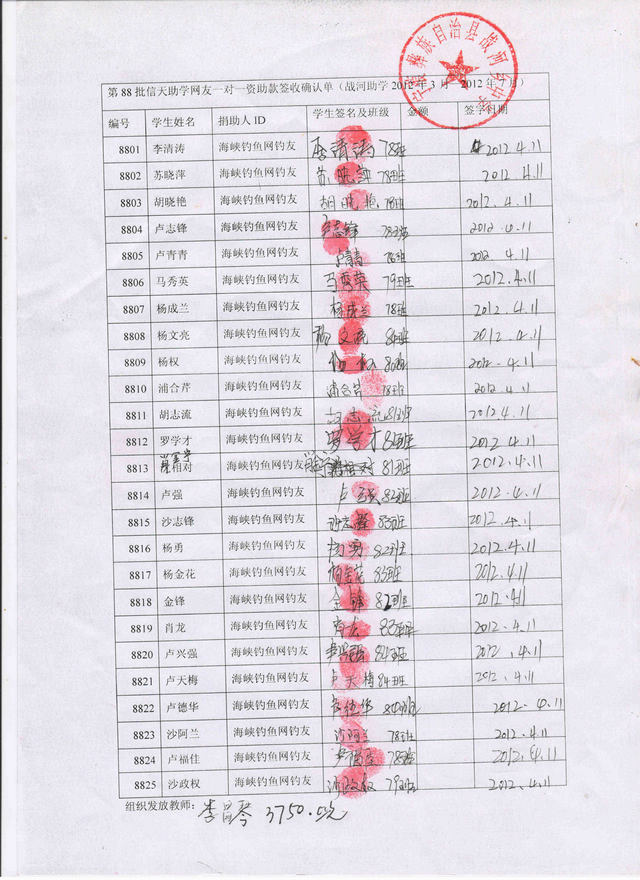 宁蒗彝族自治县战河乡
第88批信天助学网友一对一资助款签收确认单（战河助学2012年3月 2012年 月）
编号 学生姓名 捐助人ID 学生签名及班级 金额 签字日期
8801 李清涛 海峡钓鱼网钓友 李清涛 78班 2012.4.11
8802 苏晓萍 海峡钓鱼网钓友 苏晓萍 78班 2012 4.11
8803 胡晓艳 海峡钓鱼网钓友 胡晓艳 78班 2012.4.11
8804 卢志锋 海峡钓鱼网钓友 卢志锋 78班 2012.4.11
8805 卢青青 海峡钓鱼网钓友 卢青青 78班 2012 4.11
8806 马秀英 海峡钓鱼网钓友 马秀英 79班 2012.4.11
8807 杨成兰 海峡钓鱼网钓友 杨成兰 78班 2012.4.11
8808 杨文亮 海峡钓鱼网钓友 杨文亮 80班 2012.4.11
8809 杨权 海峡钓鱼网钓友 杨权 80班 2012.4.11
8810 浦合芹 海峡钓鱼网钓友 浦合芹 78班 2012 4.11
8811 胡志流 海峡钓鱼网钓友 胡志流 81班 2012 4.11
8812 罗学才 海峡钓鱼网钓友 罗学才 84班 2012.4.11
8813 相对 海峡钓鱼网钓友 相对 81班 2012.4.11
8814 卢强 海峡钓鱼网钓友 卢强 82班 2012.4.11
8815 沙志锋 海峡钓鱼网钓友 沙志锋 83班 2012.4.11
8816 杨勇 海峡钓鱼网钓友 杨勇 82班 2012.4.11
8817 杨金花 海峡钓鱼网钓友 杨金花 83班 2012.4.11
8818 金锋 海峡钓鱼网钓友 金锋 82班 2012.4.11
8819 肖龙 海峡钓鱼网钓友 肖龙 83班 2012.4.11
8820 卢兴强 海峡钓鱼网钓友 卢兴强 84班 2012.4.11
8821 卢天梅 海峡钓鱼网钓友 卢天梅 84班 2012.4.11
8822 卢德华 海峡钓鱼网钓友 卢德华 84班 2012.4.11
8823 沙阿兰 海峡钓鱼网钓友 沙阿兰 78班 2012.4.11
8824 卢福佳 海峡钓鱼网钓友 78班 2012.4.11
8825 沙政权 海峡钓鱼网钓友 沙政权 79班 2012.4.11
组织发放教师： 3750.元